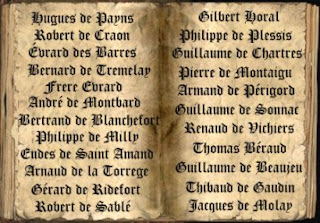 Hugues de Payns
Robert de Craon
Évrard des Barres
Bernard de Tremelay
Frere Evrard
André de Montbard
Bertrand de Blanchefort
Philippe de Milly
Eudes de Saint Amand
Arnaud de la Torrege
Gérard de Ridefort
Robert de Sablé
Gilbert Horal
Philippe de Plessis
Guillaume de Chartres
Pierre de Montaigu
Armand de Périgord
Guillaume de Sonnac
Renaud de Vichiers
Thomas Béraud
Guillaume de Beaujeu
Thibaud de Gaudin
Jacques de Molay